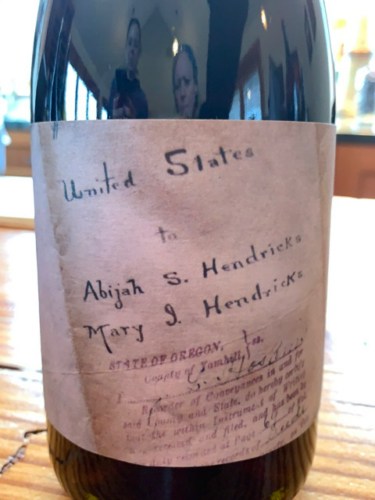 United States
to
Abijah S. Hendricks
Mary J. Hendricks
STATE OF OREGON, ss.
County of Yamhill
I
Recorder of Conveyances in and for
said County and State, do hereby certify
that the within Instrument of Writing
was received and filed, and
duly recorded at Page